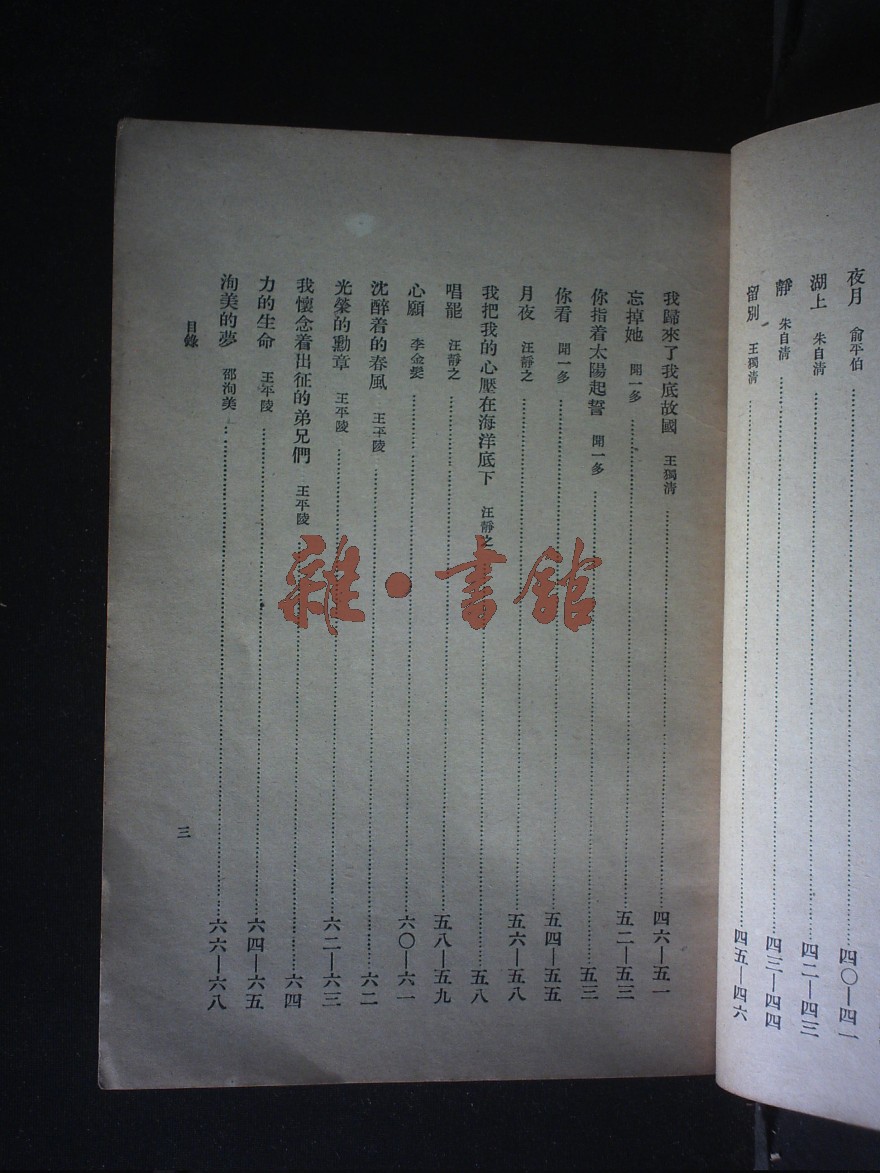 夜月 俞平伯 四〇—四一
湖上 朱自清 四二—四三
靜 朱自清 四三—四四
留別 王獨清 四五—四六
我歸來了我底故國 王獨清 四六—五一
忘掉她 聞一多 五二—五三
你指着太陽起誓 聞一多 五三
你看 聞一多 五四—五五
月夜 汪靜之 五六—五八
我把我的心壓在海洋底下 汪靜之 五八
唱罷 汪靜之 五八—五九
心願 李金髮 六〇—六一
沈醉着的春風 王平陵 六二
光榮的勳章 王平陵 六二—六三
我懷念着出征的弟兄們 王平陵 六四
力的生命 王平陵 六四—六五
洵美的夢 邵洵美 六六—六八
目錄
三
雜·書館